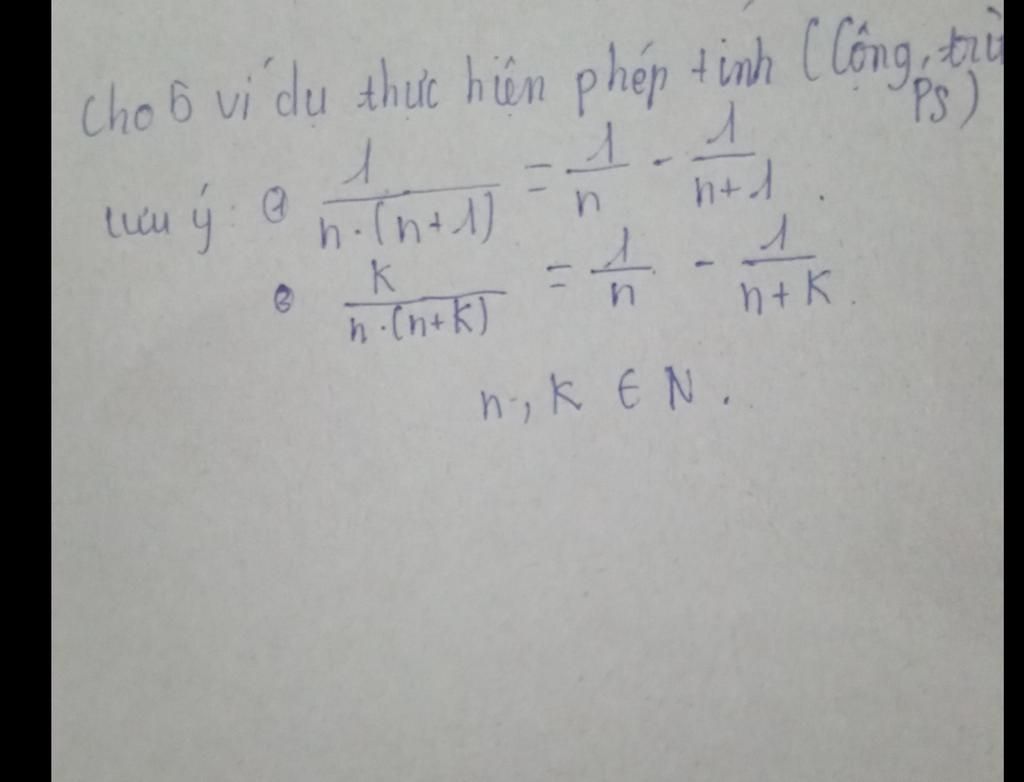 Cho 5 ví dụ thực hiện phép tính (Cộng, trừ
PS)
Lưu ý: ① 1/(n.(n+1)) = 1/n - 1/(n+1).
② K/(n.(n+K)) = 1/n - 1/(n+K).
n, K ∈ N.